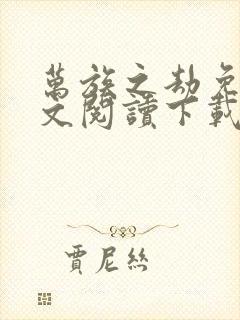 萬族之劫免
文閱讀下載
賈尼絲